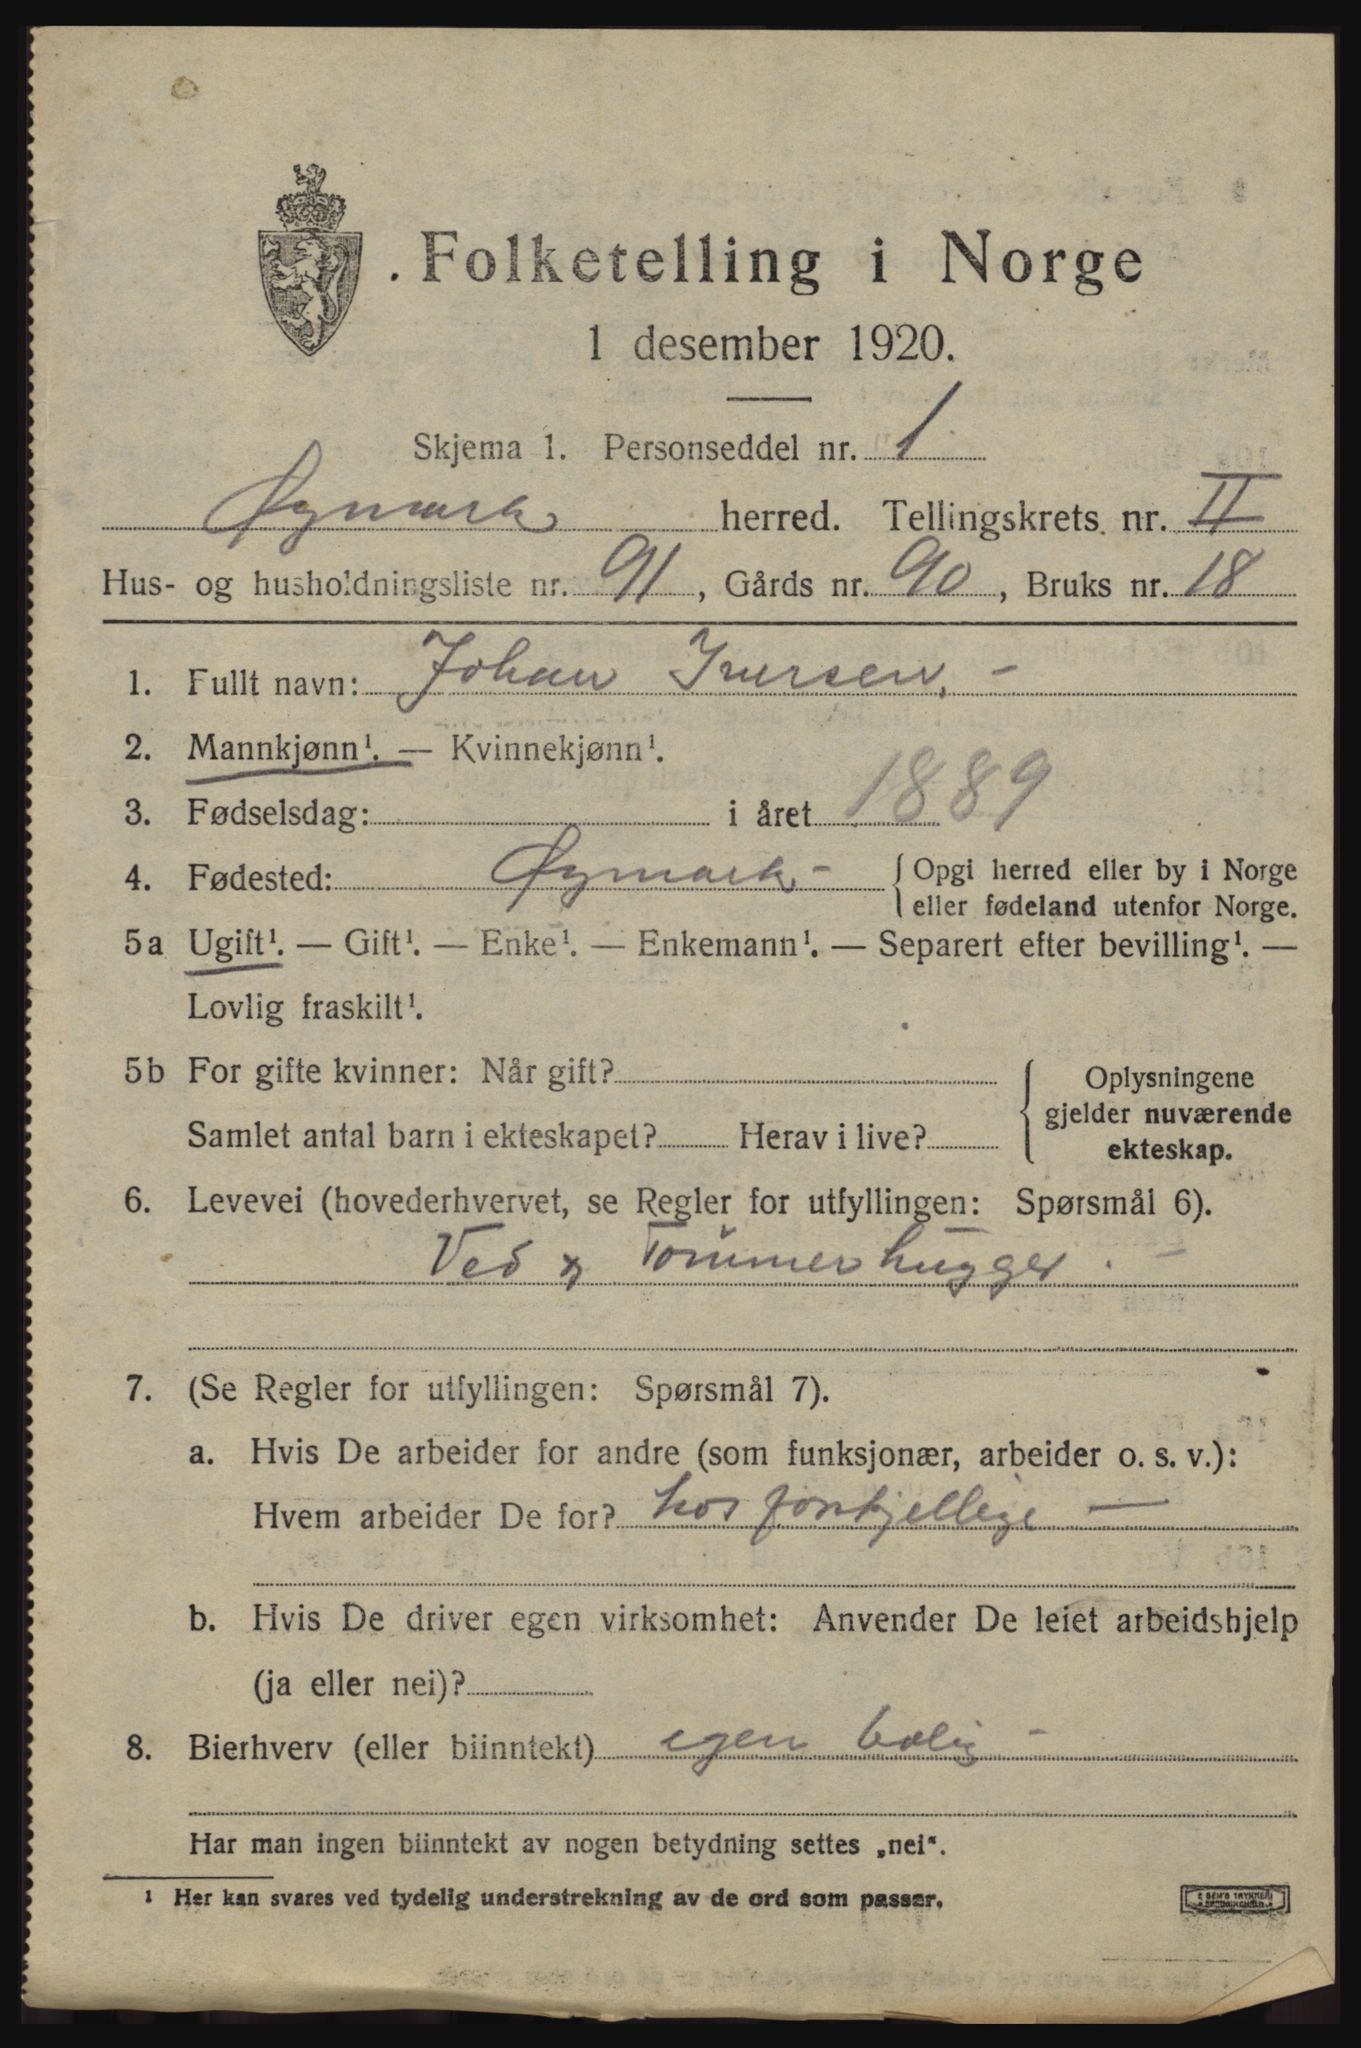 Folketelling i Norge
1 desember 1920.
Skjema 1. Personseddel nr. 1
Øymark herred. Tellingskrets nr. II
Hus- og husholdningsliste nr. 91, Gårds nr. 90, Bruks nr. 18
1. Fullt navn: Johan Iversen. -
2. Mannkjønn¹. — Kvinnekjønn¹.
3. Fødselsdag: i året 1889
4. Fødested: Øymark - { Opgi herred eller by i Norge
eller fødeland utenfor Norge.
5a Ugift¹. — Gift¹. — Enke¹. — Enkemann¹. — Separert efter bevilling¹. —
Lovlig fraskilt¹.
5b For gifte kvinner: Når gift? { Oplysningene
gjelder nuværende
Samlet antal barn i ekteskapet? Herav i live?
ekteskap.
6. Levevei (hovederhvervet, se Regler for utfyllingen: Spørsmål 6).
Ved & Tømmerhugger. -
7. (Se Regler for utfyllingen: Spørsmål 7).
a. Hvis De arbeider for andre (som funksjonær, arbeider o. s. v.):
Hvem arbeider De for? hos forskjellige —
b. Hvis De driver egen virksomhet: Anvender De leiet arbeidshjelp
(ja eller nei)?
8. Bierhverv (eller biinntekt) egen bolig -
Har man ingen biinntekt av nogen betydning settes „nei“.
¹ Her kan svares ved tydelig understrekning av de ord som passer.